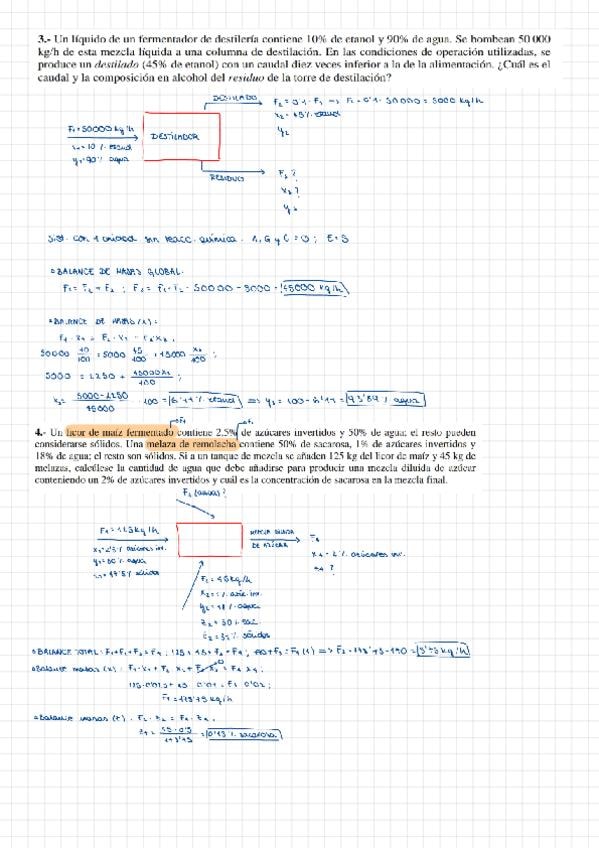 3.- Un líquido de un fermentador de destilería contiene 10% de etanol y 90% de agua. Se bombean 50 000
kg/h de esta mezcla líquida a una columna de destilación. En las condiciones de operación utilizadas, se
produce un destilado (45% de etanol) con un caudal diez veces inferior a la de la alimentación. ¿Cuál es el
caudal y la composición en alcohol del residuo de la torre de destilación?
DESTILADO
F₂ = 0'1 · F₁ => F₂ = 0'1 · 50000 = 5000 kg/h
x₂ = 45 % etanol
y₂
F₁ = 50000 kg/h
x₁ = 10 % etanol
y₁ = 90 % agua
DESTILADOR
RESIDUO
F₃ ?
x₃ ?
y₃
Sist. con 1 unidad sin reacc. química. A, G y C = 0 ; E = S
BALANCE DE MASAS GLOBAL.
F₁ = F₂ + F₃ ; F₃ = F₁ - F₂ = 50000 - 5000 = 45000 kg/h
BALANCE DE MASAS (x):
F₁ · x₁ = F₂ · x₂ + F₃ x₃
50000 10/100 = 5000 45/100 + 45000 x₃/100 ;
5000 = 2250 + 45000x₃/100 ;
x₃ = 5000-2250/45000 · 100 = 6'11 % etanol => y₃ = 100 - 6'11 = 93'89 % agua
4.- Un licor de maíz fermentado contiene 2.5% de azúcares invertidos y 50% de agua; el resto pueden
considerarse sólidos. Una melaza de remolacha contiene 50% de sacarosa, 1% de azúcares invertidos y
18% de agua; el resto son sólidos. Si a un tanque de mezcla se añaden 125 kg del licor de maíz y 45 kg de
melazas, calcúlese la cantidad de agua que debe añadirse para producir una mezcla diluida de azúcar
conteniendo un 2% de azúcares invertidos y cuál es la concentración de sacarosa en la mezcla final.
F₃ (agua) ?
F₁ = 125 kg/h
x₁ = 2'5 % azúcares inv.
y₁ = 50 % agua
47'5 % sólidos
MEZCLA DILUIDA
DE AZÚCAR
F₄
x₄ = 2 % azúcares inv.
z₄ ?
F₂ = 45 kg/h
x₂ = 1 % azúc. inv.
y₂ = 18 % agua
z₂ = 50 % sac
31 % sólidos
BALANCE TOTAL: F₁+F₂+F₃ = F₄
Balance masas (x): F₁·x₁ + F₂ x₂ + F₃ x₃ = F₄ x₄
125·0'025 + 45 · 0'01 = F₄ 0'02 ;
Balance masas (z). F₂ · z₂ = F₄ · z₄.